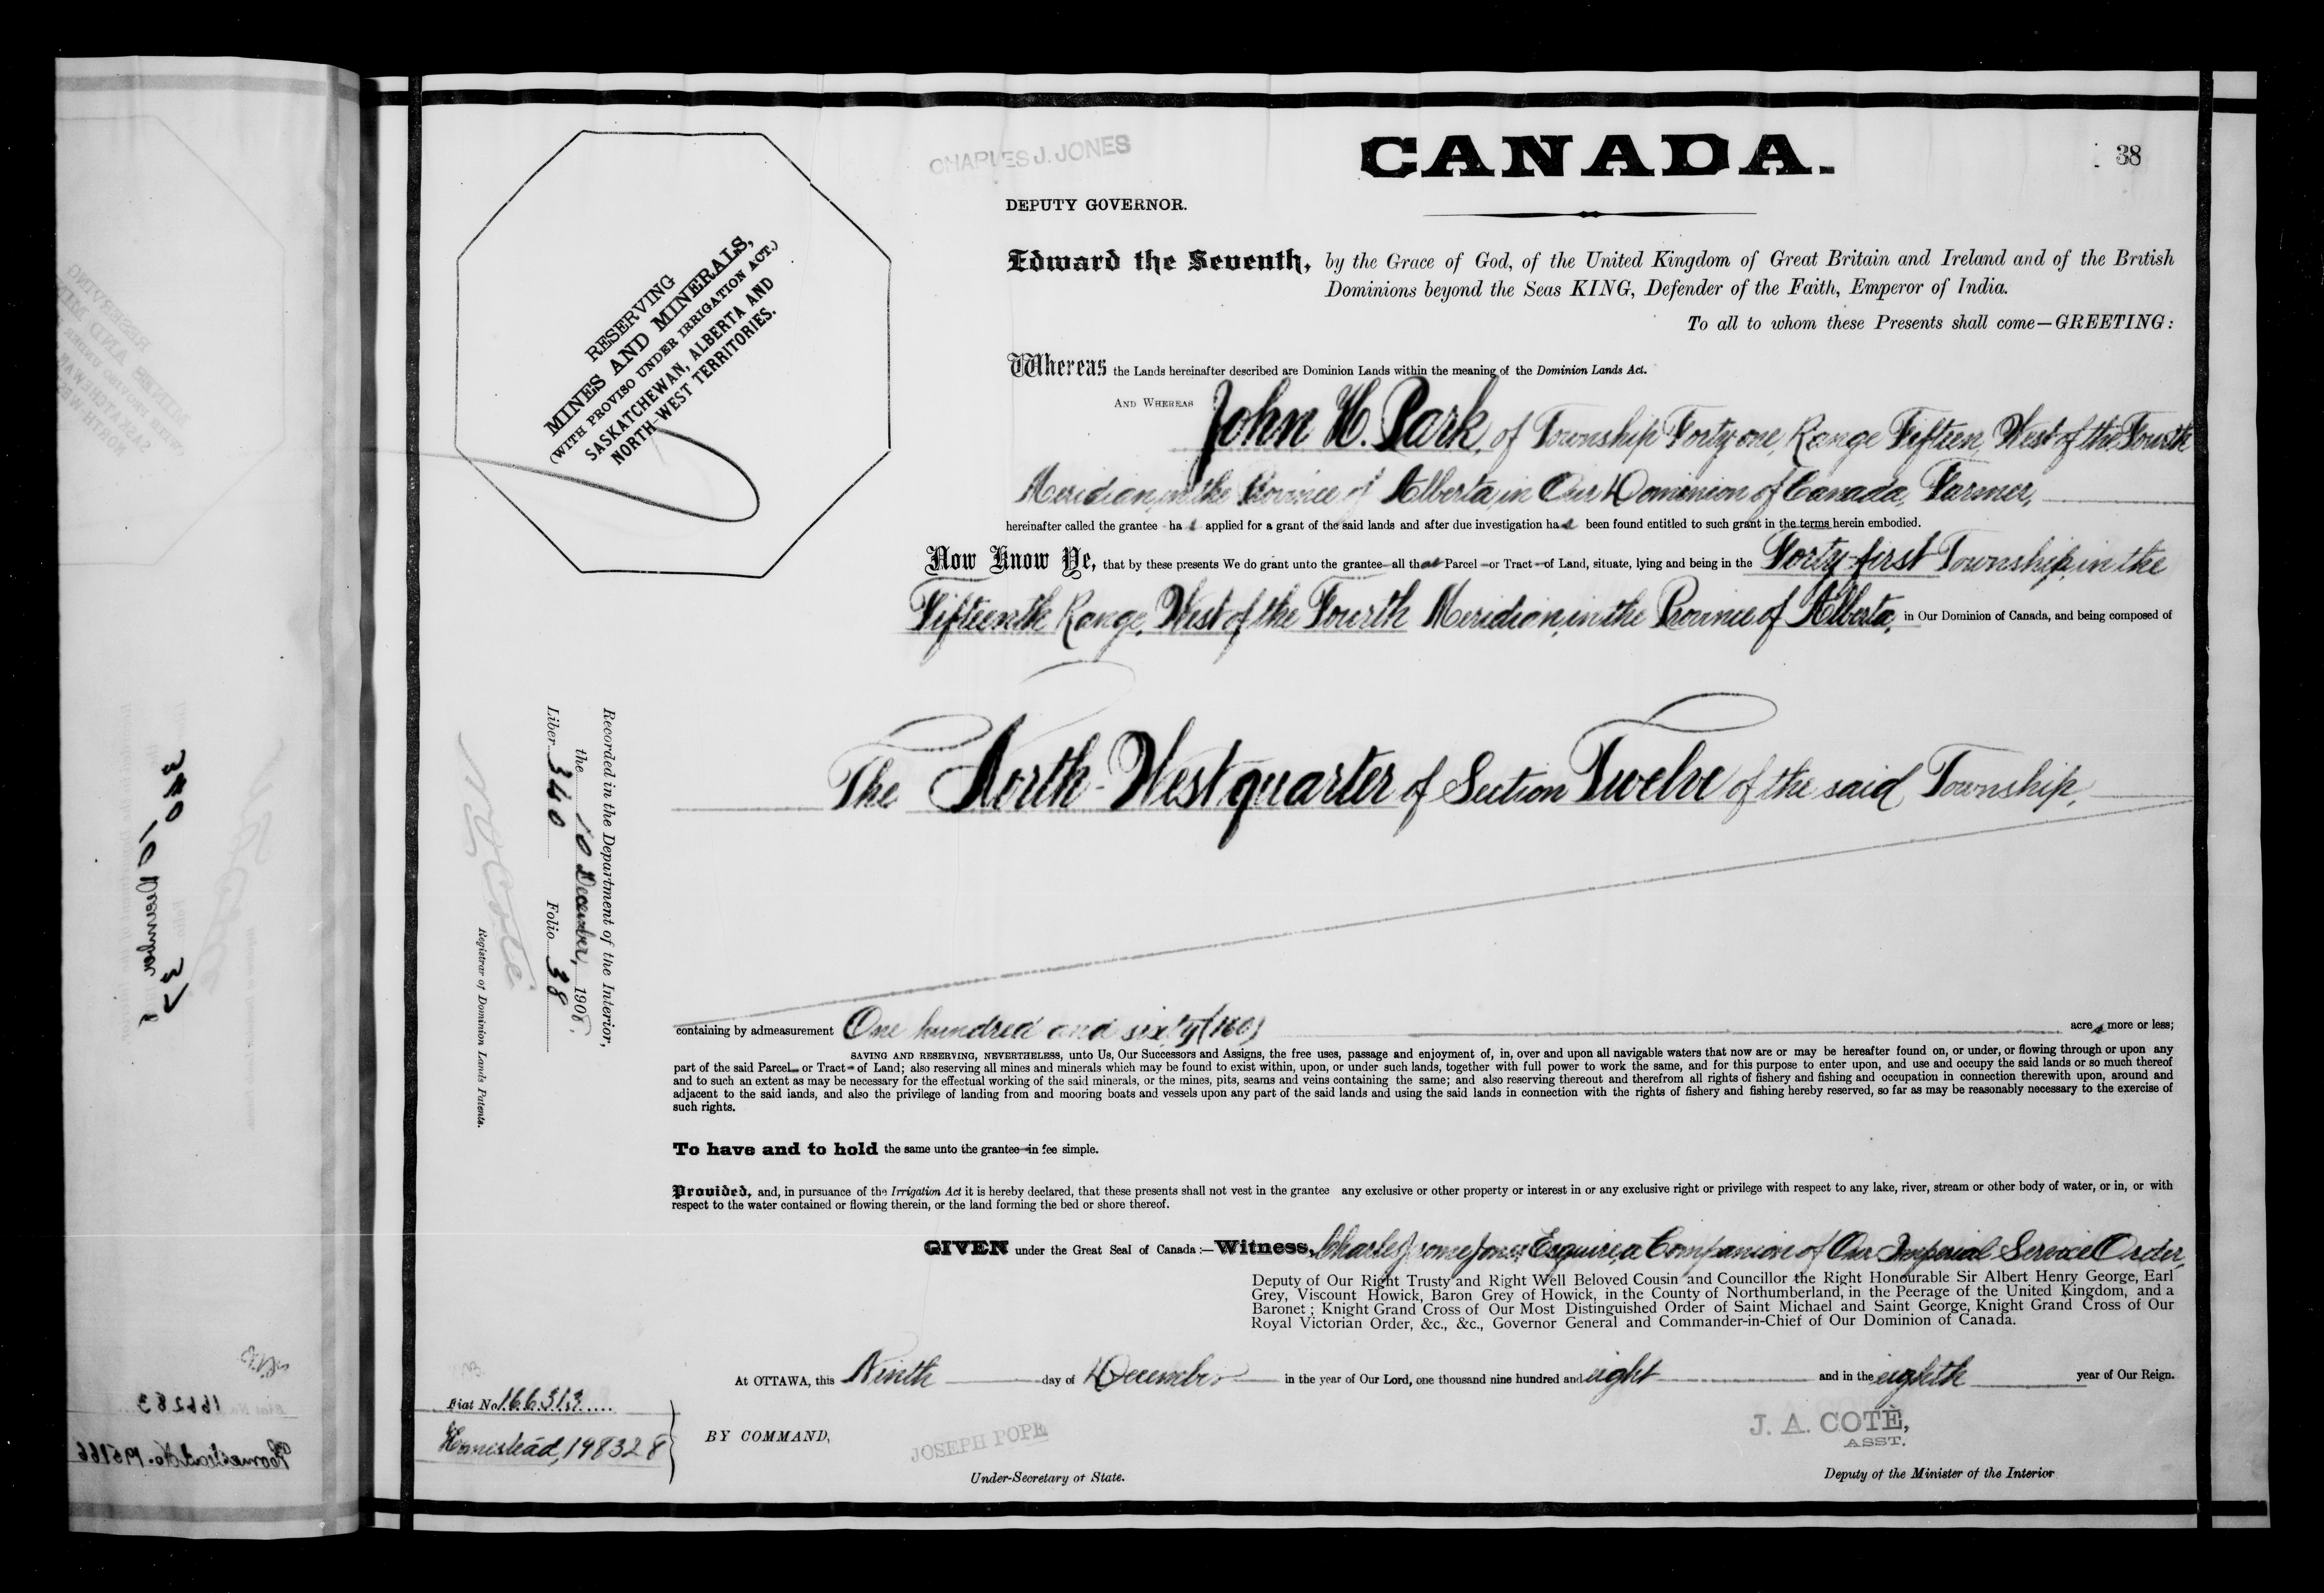 CHARLES J. JONES
CANADA.
38
DEPUTY GOVERNOR.
Edward the Seventh, by the Grace of God, of the United Kingdom of Great Britain and Ireland and of the British
Dominions beyond the Seas KING, Defender of the Faith, Emperor of India.
To all to whom these Presents shall come—GREETING:
RESERVING
MINES AND MINERALS,
(WITH PROVISO UNDER IRRIGATION ACT.)
SASKATCHEWAN, ALBERTA AND
NORTH-WEST TERRITORIES.
Whereas the Lands hereinafter described are Dominion Lands within the meaning of the Dominion Lands Act.
AND WHEREAS John H. Park, of Township Forty one, Range Fifteen, West of the Fourth
Meridian, in the Province of Alberta, in Our Dominion of Canada, Farmer,
hereinafter called the grantee has applied for a grant of the said lands and after due investigation has been found entitled to such grant in the terms herein embodied.
Now Know Ye, that by these presents We do grant unto the grantee all that Parcel or Tract of Land, situate, lying and being in the Forty-first Township, in the
Fifteenth Range, West of the Fourth Meridian, in the Province of Alberta, in Our Dominion of Canada, and being composed of
The North-West quarter of Section Twelve of the said Township,
Recorded in the Department of the Interior,
the 10 December, 1908.
Liber 340 Folio 38
N.O. Coté
Registrar of Dominion Lands Patents.
containing by admeasurement One hundred and sixty (160) acres more or less;
SAVING AND RESERVING, NEVERTHELESS, unto Us, Our Successors and Assigns, the free uses, passage and enjoyment of, in, over and upon all navigable waters that now are or may be hereafter found on, or under, or flowing through or upon any
part of the said Parcel or Tract of Land; also reserving all mines and minerals which may be found to exist within, upon, or under such lands, together with full power to work the same, and for this purpose to enter upon, and use and occupy the said lands or so much thereof
and to such an extent as may be necessary for the effectual working of the said minerals, or the mines, pits, seams and veins containing the same; and also reserving thereout and therefrom all rights of fishery and fishing and occupation in connection therewith upon, around and
adjacent to the said lands, and also the privilege of landing from and mooring boats and vessels upon any part of the said lands and using the said lands in connection with the rights of fishery and fishing hereby reserved, so far as may be reasonably necessary to the exercise of
such rights.
To have and to hold the same unto the grantee in fee simple.
Provided, and, in pursuance of the Irrigation Act it is hereby declared, that these presents shall not vest in the grantee any exclusive or other property or interest in or any exclusive right or privilege with respect to any lake, river, stream or other body of water, or in, or with
respect to the water contained or flowing therein, or the land forming the bed or shore thereof.
GIVEN under the Great Seal of Canada:—Witness, Charles Jerome Jones, Esquire, a Companion of Our Imperial Service Order,
Deputy of Our Right Trusty and Right Well Beloved Cousin and Councillor the Right Honourable Sir Albert Henry George, Earl
Grey, Viscount Howick, Baron Grey of Howick, in the County of Northumberland, in the Peerage of the United Kingdom, and a
Baronet; Knight Grand Cross of Our Most Distinguished Order of Saint Michael and Saint George, Knight Grand Cross of Our
Royal Victorian Order, &c., &c., Governor General and Commander-in-Chief of Our Dominion of Canada.
At OTTAWA, this Ninth day of December in the year of Our Lord, one thousand nine hundred and eight and in the eighth year of Our Reign.
Fiat No. 166313
Homestead, 198328
BY COMMAND,
JOSEPH POPE
Under-Secretary of State.
J. A. COTÈ,
ASST.
Deputy of the Minister of the Interior
340
10 December
37
166283
Homestead No. 195166